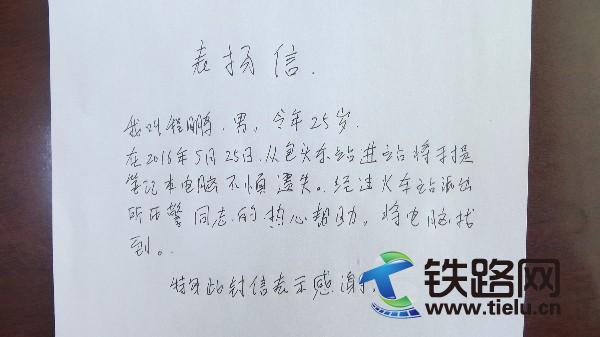 表扬信.
我叫程鹏,男,今年25岁.
在2016年5月25日.从包头东站进站将手提
笔记本电脑不慎遗失。经过火车站派出
所民警同志的热心帮助,将电脑找
到。
特写此封信表示感谢.
铁路网
www.tielu.cn